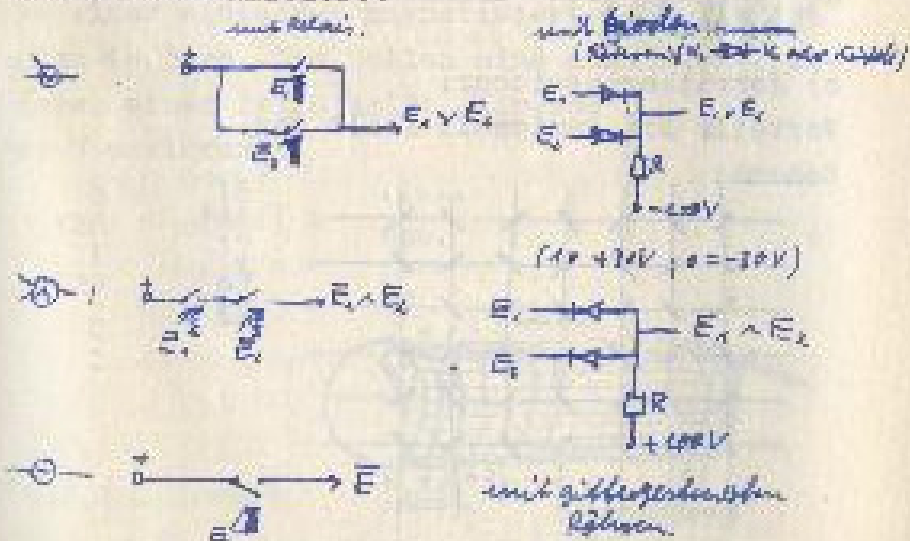 mit Relais.
mit Dioden
(Röhren
∨
+
E₁
E₂
E₁ ∨ E₂
E₁
E₂
E₁ ∨ E₂
R
-200V
(1 = +30V ; 0 = -30V)
∧
+
E₁
E₂
E₁ ∧ E₂
E₁
E₂
E₁ ∧ E₂
R
+200V
-
+
E
E̅
mit gittergesteuerten
Röhren.